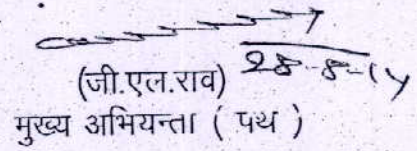 28-8-14
(जी.एल.राव)
मुख्य अभियन्ता ( पथ )